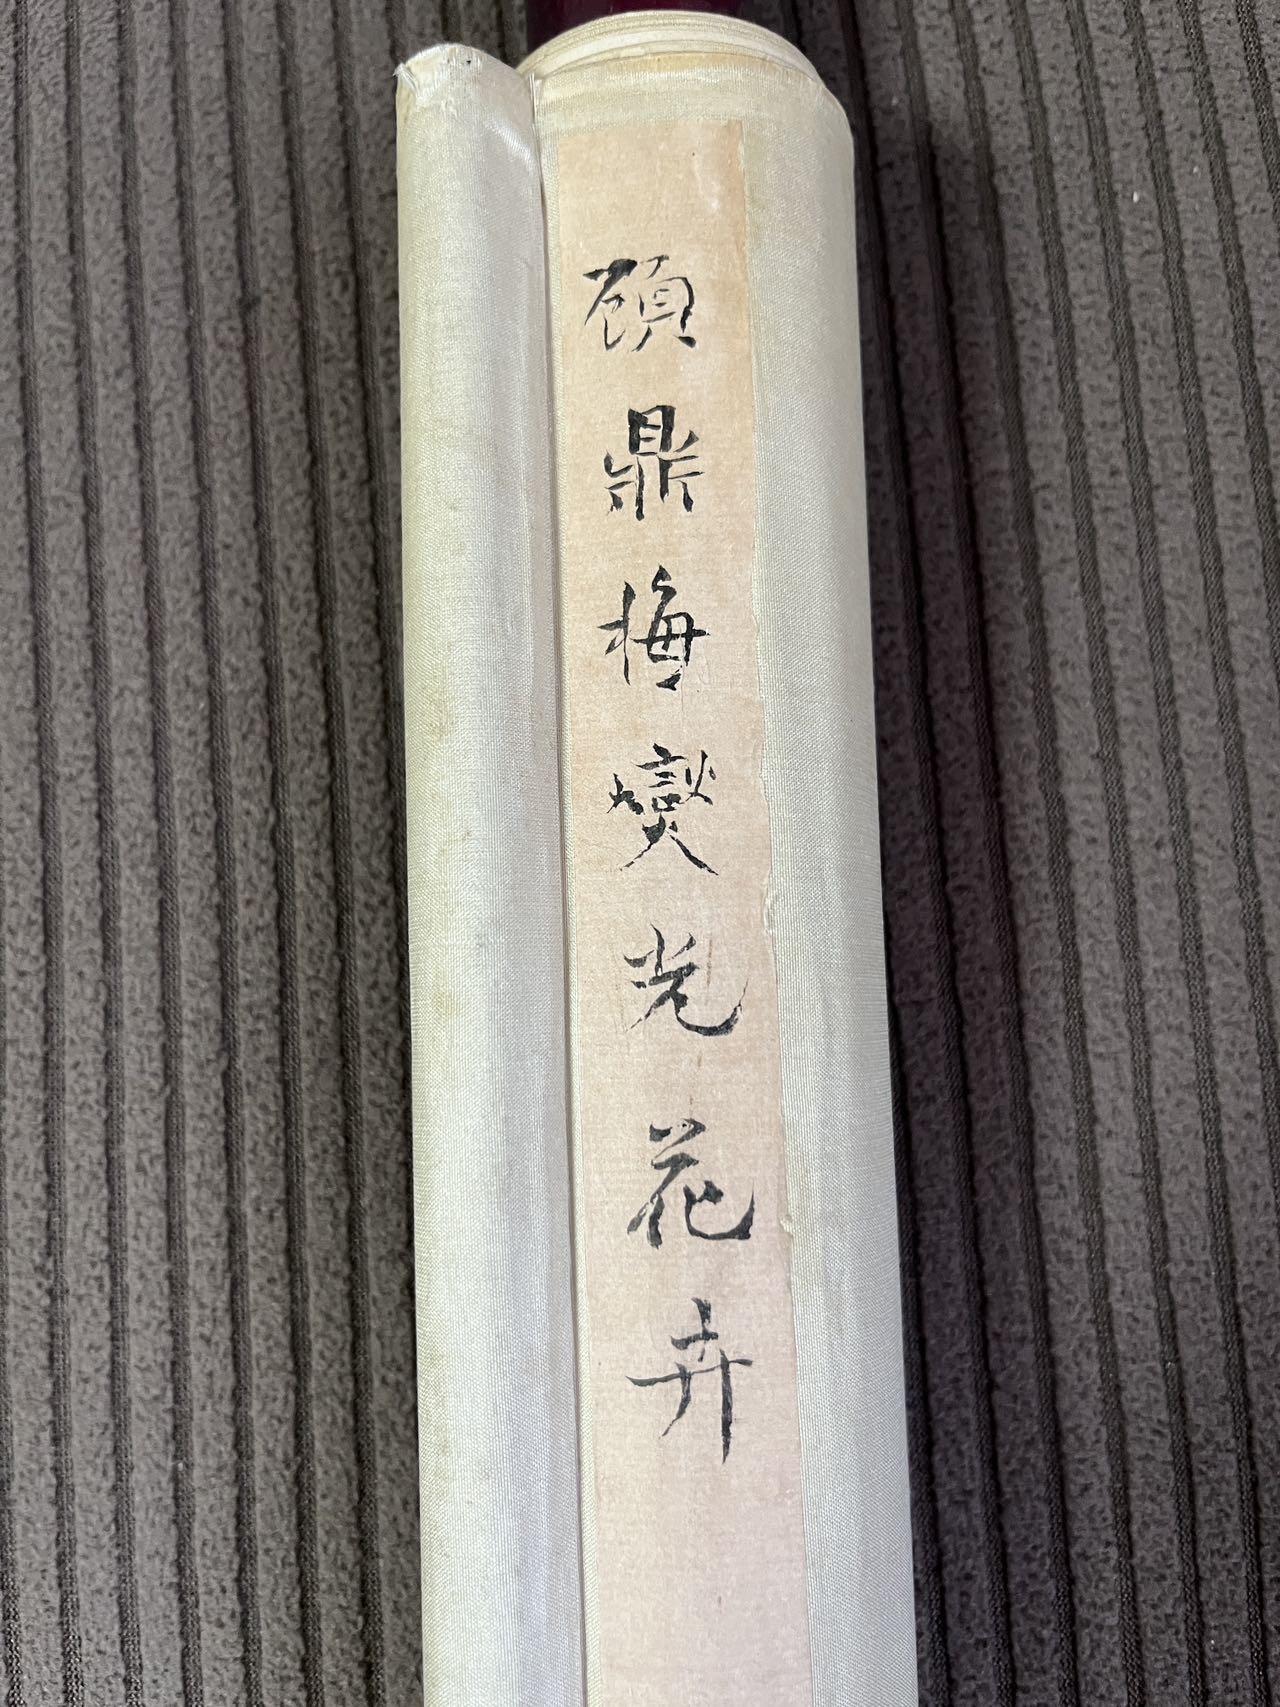 顧鼎梅燮光花卉